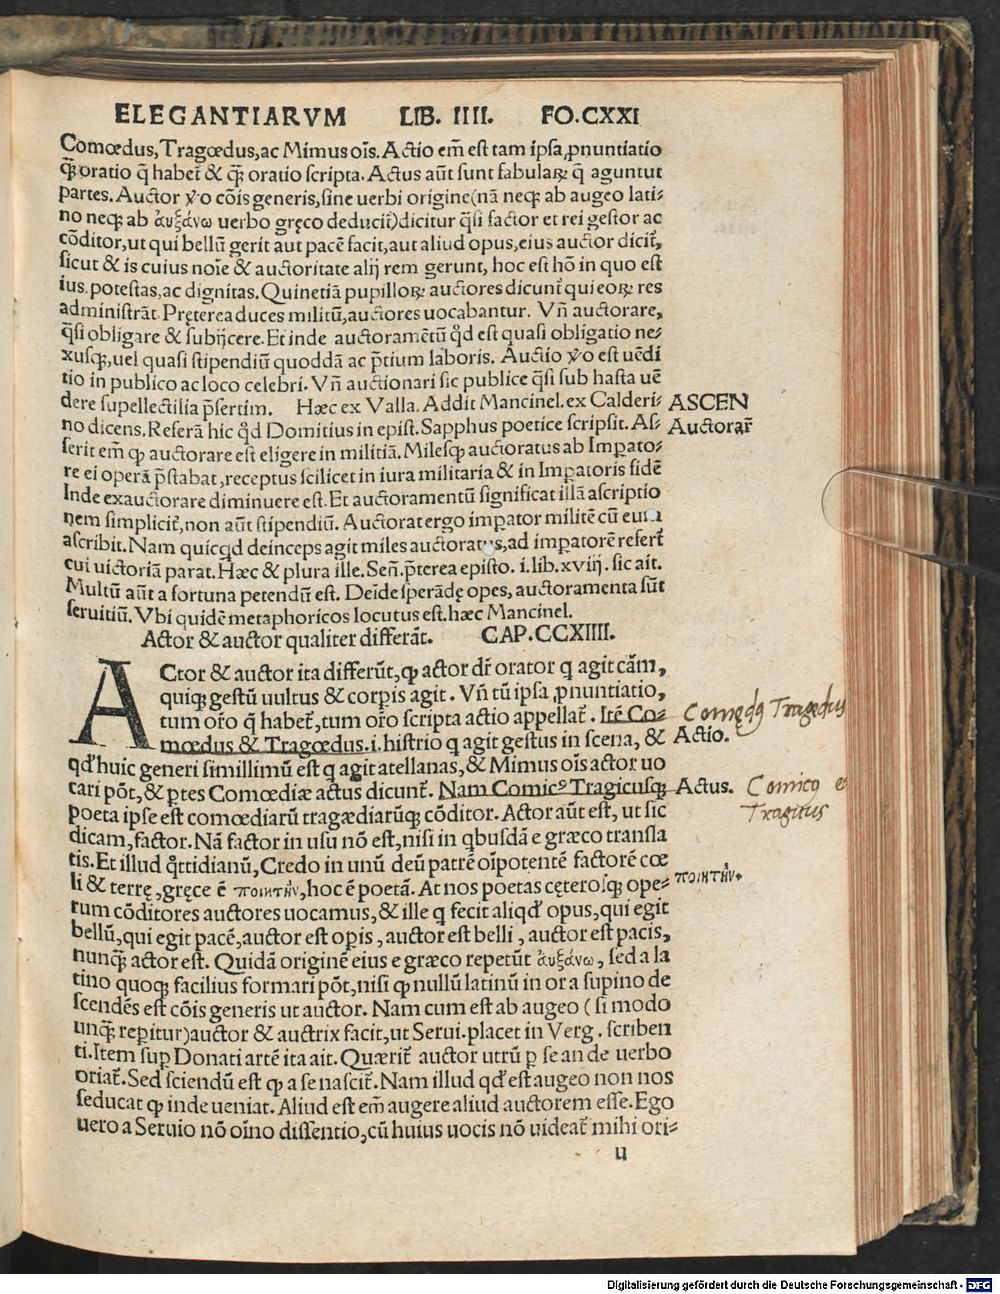 ELEGANTIARVM LIB. IIII. FO.CXXI
Comœdus, Tragœdus, ac Mimus oĩs. Actio em̃ est tam ipsa ꝓnuntiatio
q̃ꝫ oratio q̃ habet̃ & q̃ꝫ oratio scripta. Actus aũt sunt fabulaꝝ q̃ aguntur
partes. Auctor ꝟo cõis generis, sine uerbi origine (nã neqꝫ ab augeo lati⸗
no neqꝫ ab ἀυξάνω uerbo gręco deducit̃) dicitur q̃si factor et rei gestor ac
cõditor, ut qui bellũ gerit aut pacẽ facit, aut aliud opus, eius auctor dicit̃,
sicut & is cuius noĩe & auctoritate alij rem gerunt, hoc est hõ in quo est
ius, potestas, ac dignitas. Quinetiã pupilloꝝ auctores dicunt̃ qui eoꝝ res
administrãt. Pręterea duces militũ, auctores uocabantur. Vñ auctorare,
q̃si obligare & subijcere. Et inde auctoramẽtũ qd̃ est quasi obligatio ne⸗
xusqꝫ, uel quasi stipendiũ quoddã ac p̃tium laboris. Auctio ꝟo est uẽdi
tio in publico ac loco celebri. Vñ auctionari sic publice q̃si sub hasta uẽ
dere supellectilia p̃sertim. Hæc ex Valla. Addit Mancinel. ex Calderi⸗
ASCEN
no dicens. Referã hic qd̃ Domitius in epist. Sapphus poetice scripsit. As⸗
Auctorar̃
serit em̃ ꝙ auctorare est eligere in militiã. Milesqꝫ auctoratus ab Impato⸗
re ei operã p̃stabat, receptus scilicet in iura militaria & in Impatoris fidẽ
Inde exauctorare diminuere est. Et auctoramentũ significat illã ascriptio
nem simplicit̃, non aũt stipendiũ. Auctorat ergo impator militẽ cũ eum
ascribit. Nam quicqd deinceps agit miles auctoratus, ad impatorẽ refert̃
cui uictoriã parat. Hæc & plura ille. Señ. p̃terea episto. i. lib. xviij. sic ait.
Multũ aũt a fortuna petendũ est. Deĩde sperãdę opes, auctoramenta sũt
seruitiũ. Vbi quidẽ metaphoricos locutus est. hæc Mancinel.
Actor & auctor qualiter differãt. CAP. CCXIIII.
ACtor & auctor ita differũt, ꝙ actor dr̃ orator q agit cãm,
quiqꝫ gestũ uultus & corpis agit. Vñ tũ ipsa ꝓnuntiatio,
tum or̃o q̃ habet̃, tum or̃o scripta actio appellat̃. Itẽ Co⸗
Comędꝗ Tragędus
mœdus & Tragœdus. i. histrio q agit gestus in scena, &
Actio.
qd̃ huic generi simillimũ est q agit atellanas, & Mimus oĩs actor uo
cari põt, & ptes Comœdiæ actus dicunt̃. Nam Comicꝰ Tragicusqꝫ
Actus.
Comicꝗ et
Tragicus
poeta ipse est comœdiarũ tragædiarũqꝫ cõditor. Actor aũt est, ut sic
dicam, factor. Nã factor in usu nõ est, nisi in qbusdã e græco transla
tis. Et illud qͦttidianũ, Credo in unũ deũ patrẽ oĩpotentẽ factorẽ cœ
li & terrę, gręce ẽ ποιητὴν, hoc ẽ poetã. At nos poetas cęteroſqꝫ ope⸗
ποιητὴν.
rum cõditores auctores uocamus, & ille q fecit aliqd̃ opus, qui egit
bellũ, qui egit pacẽ, auctor est opis, auctor est belli, auctor est pacis,
nunq̃ꝫ actor est. Quidã originẽ eius e græco repetũt ἀυξάνω, sed a la
tino quoqꝫ facilius formari põt, nisi ꝙ nullũ latinũ in or a supino de
scendẽs est cõis generis ut auctor. Nam cum est ab augeo (si modo
unq̃ꝫ repitur) auctor & auctrix facit, ut Serui. placet in Verg. scriben
ti. Item sup Donati artẽ ita ait. Quærit̃ auctor utrũ p se an de uerbo
oriat̃. Sed sciendũ est ꝙ a se nascit̃. Nam illud qd̃ est augeo non nos
seducat ꝙ inde ueniat. Aliud est em̃ augere aliud auctorem esse. Ego
uero a Seruio nõ oĩno dissentio, cũ huius uocis nõ uideat̃ mihi ori⸗
u
Digitalisierung gefördert durch die Deutsche Forschungsgemeinschaft - DFG